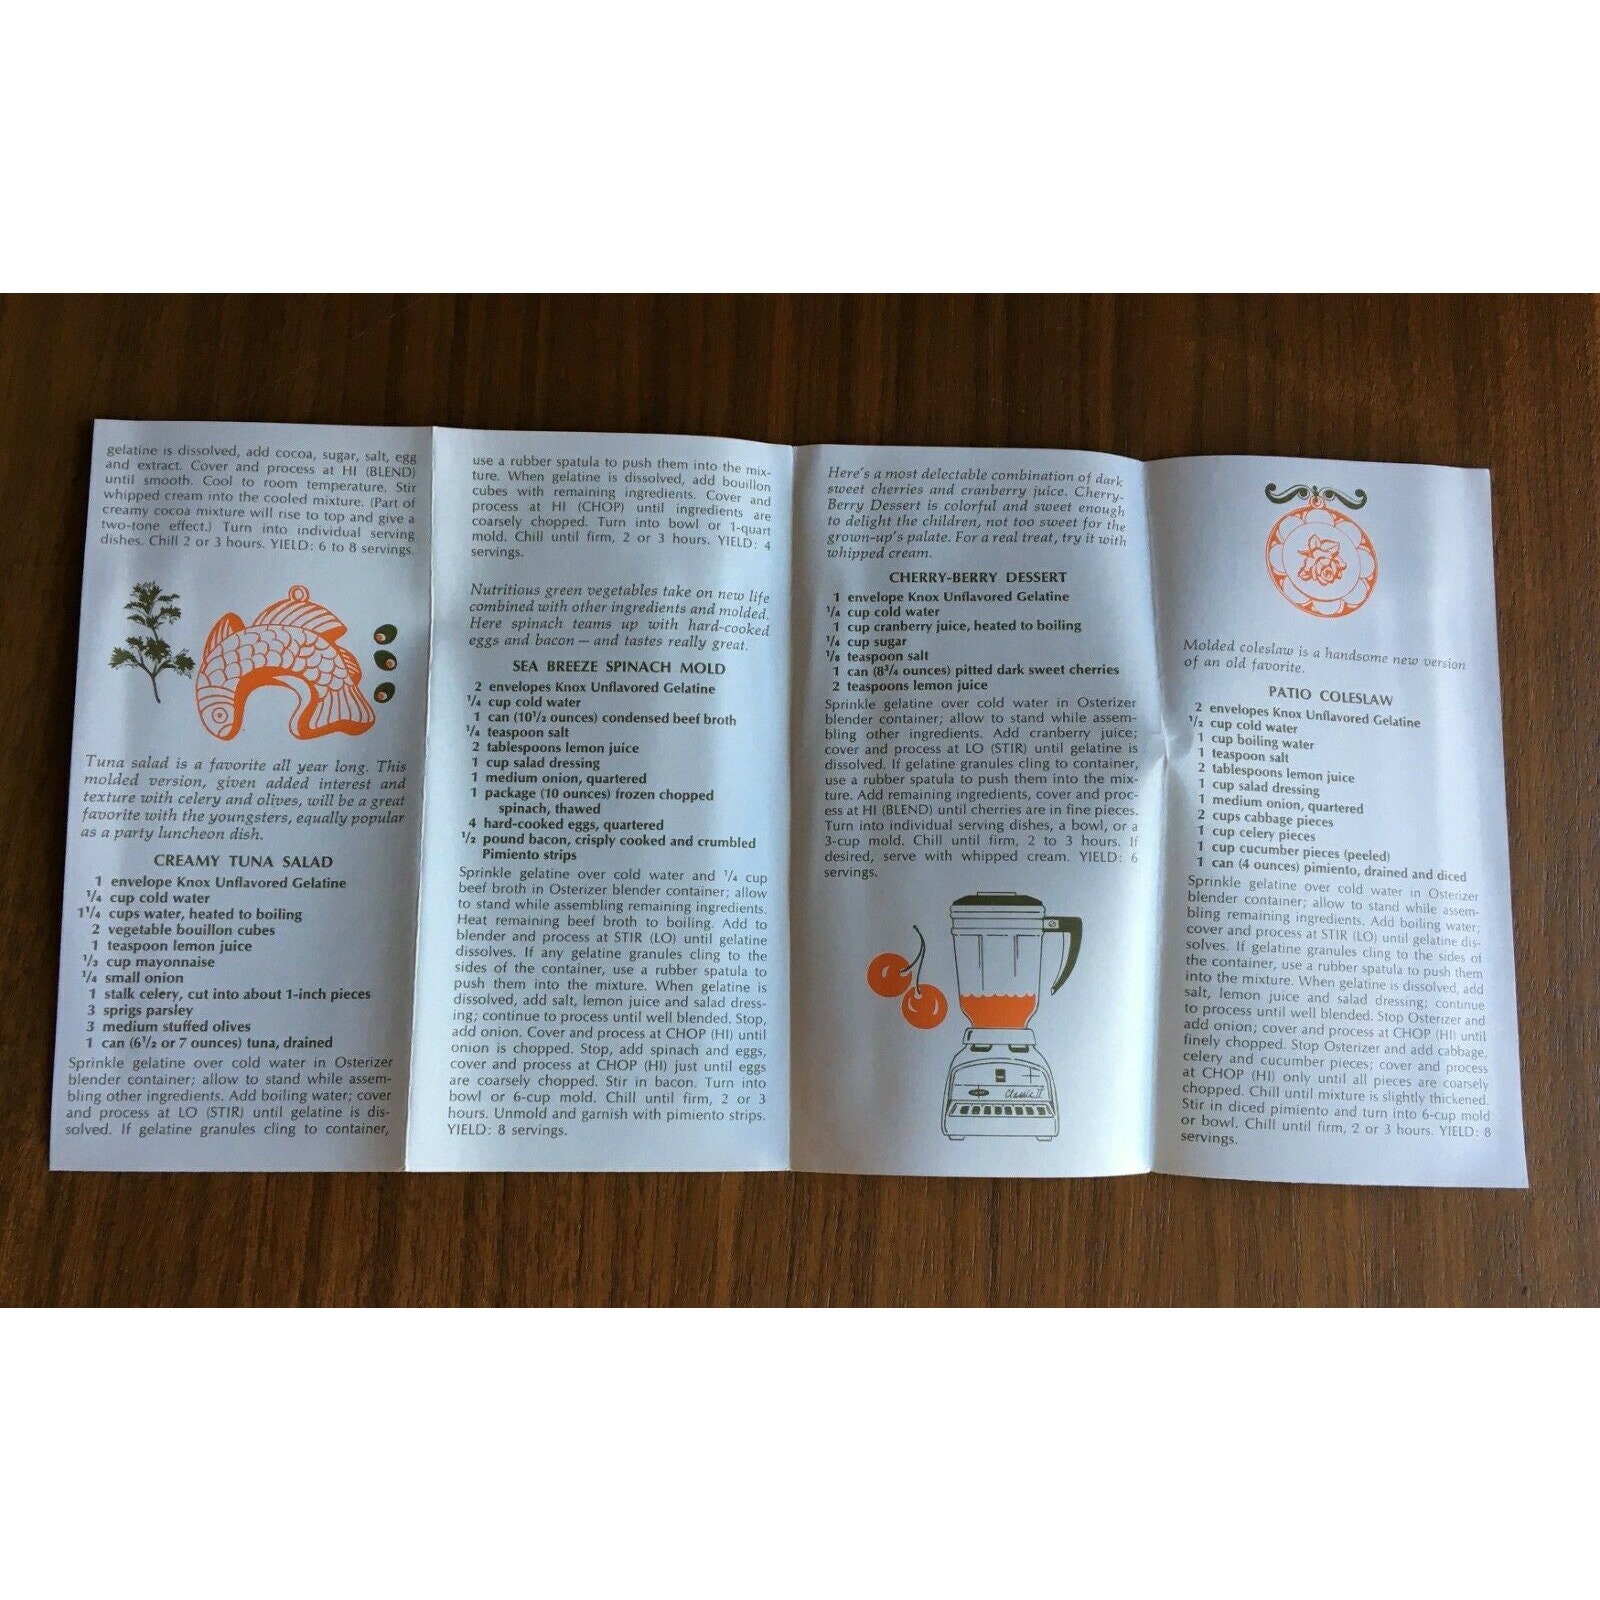 gelatine is dissolved, add cocoa, sugar, salt, egg
and extract. Cover and process at HI (BLEND)
until smooth. Cool to room temperature. Stir
whipped cream into the cooled mixture. (Part of
creamy cocoa mixture will rise to top and give a
two-tone effect.) Turn into individual serving
dishes. Chill 2 or 3 hours. YIELD: 6 to 8 servings.
Tuna salad is a favorite all year long. This
molded version, given added interest and
texture with celery and olives, will be a great
favorite with the youngsters, equally popular
as a party luncheon dish.
CREAMY TUNA SALAD
1 envelope Knox Unflavored Gelatine
1/4 cup cold water
1 1/4 cups water, heated to boiling
2 vegetable bouillon cubes
1 teaspoon lemon juice
1/3 cup mayonnaise
1/4 small onion
1 stalk celery, cut into about 1-inch pieces
3 sprigs parsley
3 medium stuffed olives
1 can (6 1/2 or 7 ounces) tuna, drained
Sprinkle gelatine over cold water in Osterizer
blender container; allow to stand while assem-
bling other ingredients. Add boiling water; cover
and process at LO (STIR) until gelatine is dis-
solved. If gelatine granules cling to container,
use a rubber spatula to push them into the mix-
ture. When gelatine is dissolved, add bouillon
cubes with remaining ingredients. Cover and
process at HI (CHOP) until ingredients are
coarsely chopped. Turn into bowl or 1-quart
mold. Chill until firm, 2 or 3 hours. YIELD: 4
servings.
Nutritious green vegetables take on new life
combined with other ingredients and molded.
Here spinach teams up with hard-cooked
eggs and bacon — and tastes really great.
SEA BREEZE SPINACH MOLD
2 envelopes Knox Unflavored Gelatine
1/4 cup cold water
1 can (10 1/2 ounces) condensed beef broth
1/4 teaspoon salt
2 tablespoons lemon juice
1 cup salad dressing
1 medium onion, quartered
1 package (10 ounces) frozen chopped
spinach, thawed
4 hard-cooked eggs, quartered
1/2 pound bacon, crisply cooked and crumbled
Pimiento strips
Sprinkle gelatine over cold water and 1/4 cup
beef broth in Osterizer blender container; allow
to stand while assembling remaining ingredients.
Heat remaining beef broth to boiling. Add to
blender and process at STIR (LO) until gelatine
dissolves. If any gelatine granules cling to the
sides of the container, use a rubber spatula to
push them into the mixture. When gelatine is
dissolved, add salt, lemon juice and salad dress-
ing; continue to process until well blended. Stop,
add onion. Cover and process at CHOP (HI) until
onion is chopped. Stop, add spinach and eggs,
cover and process at CHOP (HI) just until eggs
are coarsely chopped. Stir in bacon. Turn into
bowl or 6-cup mold. Chill until firm, 2 or 3
hours. Unmold and garnish with pimiento strips.
YIELD: 8 servings.
Here's a most delectable combination of dark
sweet cherries and cranberry juice. Cherry-
Berry Dessert is colorful and sweet enough
to delight the children, not too sweet for the
grown-up's palate. For a real treat, try it with
whipped cream.
CHERRY-BERRY DESSERT
1 envelope Knox Unflavored Gelatine
1/4 cup cold water
1 cup cranberry juice, heated to boiling
1/4 cup sugar
1/8 teaspoon salt
1 can (8 3/4 ounces) pitted dark sweet cherries
2 teaspoons lemon juice
Sprinkle gelatine over cold water in Osterizer
blender container; allow to stand while assem-
bling other ingredients. Add cranberry juice;
cover and process at LO (STIR) until gelatine is
dissolved. If gelatine granules cling to container,
use a rubber spatula to push them into the mix-
ture. Add remaining ingredients, cover and proc-
ess at HI (BLEND) until cherries are in fine pieces.
Turn into individual serving dishes, a bowl, or a
3-cup mold. Chill until firm, 2 to 3 hours. If
desired, serve with whipped cream. YIELD: 6
servings.
Classic II
Molded coleslaw is a handsome new version
of an old favorite.
PATIO COLESLAW
2 envelopes Knox Unflavored Gelatine
1/2 cup cold water
1 cup boiling water
1 teaspoon salt
2 tablespoons lemon juice
1 cup salad dressing
1 medium onion, quartered
2 cups cabbage pieces
1 cup celery pieces
1 cup cucumber pieces (peeled)
1 can (4 ounces) pimiento, drained and diced
Sprinkle gelatine over cold water in Osterizer
blender container; allow to stand while assem-
bling remaining ingredients. Add boiling water;
cover and process at STIR (LO) until gelatine dis-
solves. If gelatine granules cling to the sides of
the container, use a rubber spatula to push them
into the mixture. When gelatine is dissolved, add
salt, lemon juice and salad dressing; continue
to process until well blended. Stop Osterizer and
add onion; cover and process at CHOP (HI) until
finely chopped. Stop Osterizer and add cabbage,
celery and cucumber pieces; cover and process
at CHOP (HI) only until all pieces are coarsely
chopped. Chill until mixture is slightly thickened.
Stir in diced pimiento and turn into 6-cup mold
or bowl. Chill until firm, 2 or 3 hours. YIELD: 8
servings.